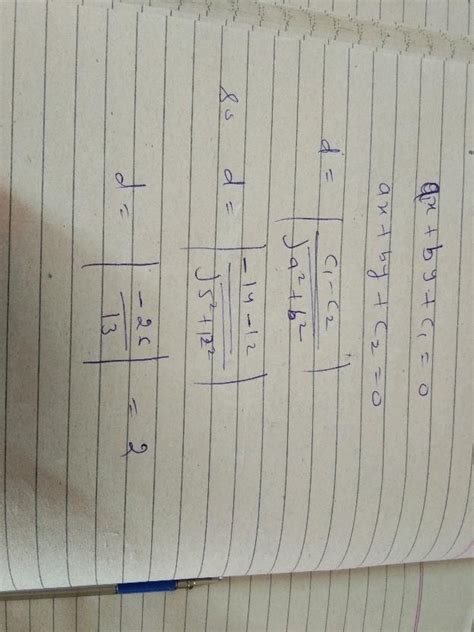 ax + by + c₁ = 0
ax + by + c₂ = 0
d = | (c₁ - c₂) / √(a² + b²) |
so d = | (-14 - 12) / √(5² + 12²) |
d = | -26 / 13 | = 2